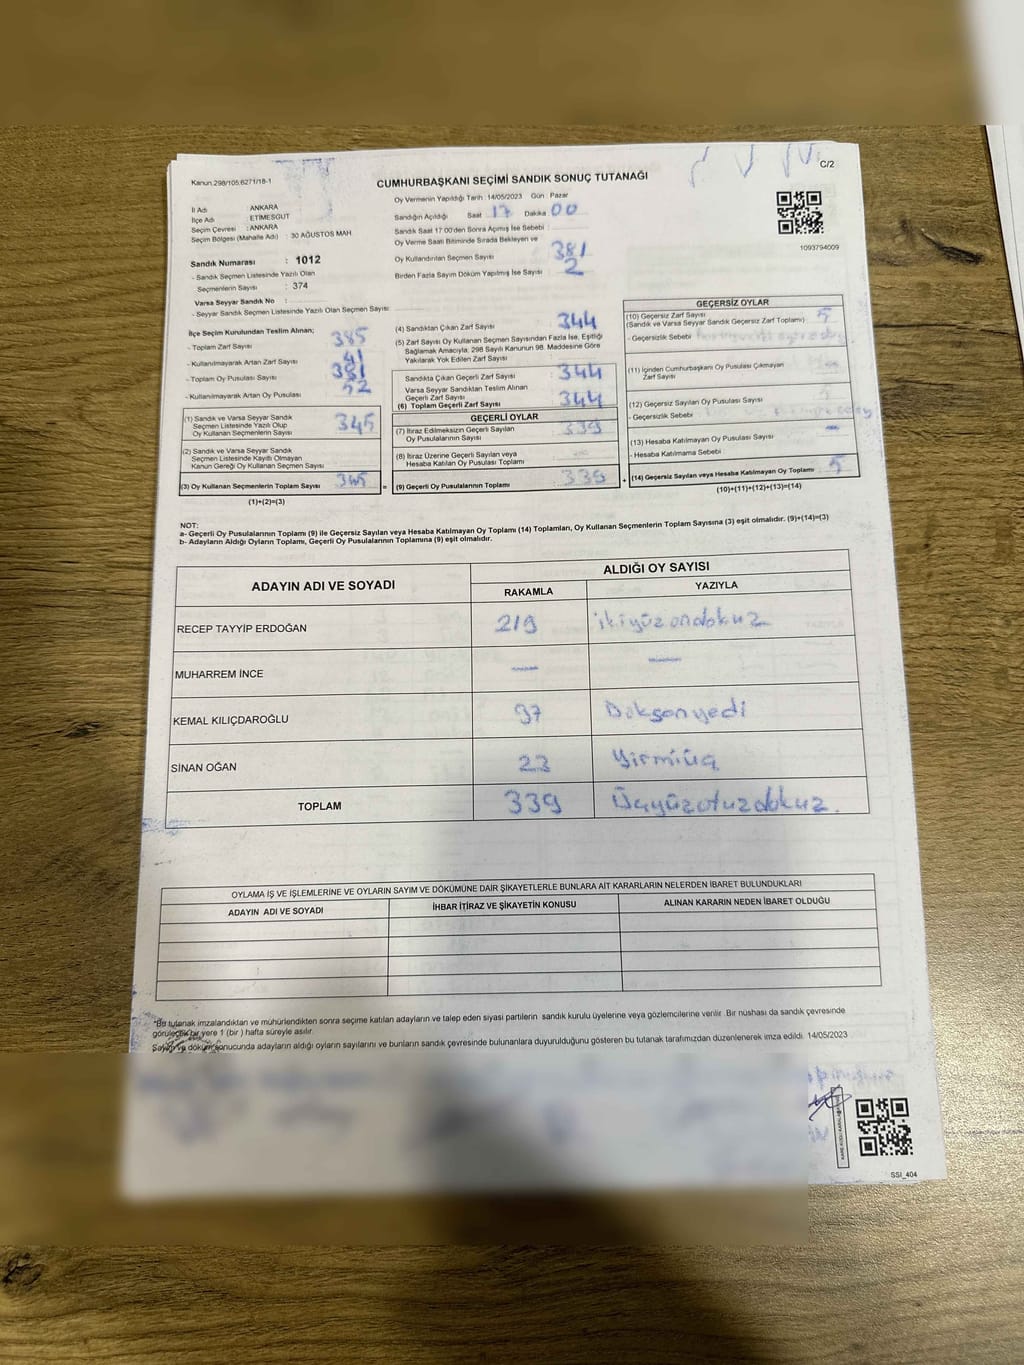 Kanun.298/105;6271/18-1
C/2
CUMHURBAŞKANI SEÇİMİ SANDIK SONUÇ TUTANAĞI
Oy Vermenin Yapıldığı Tarih :14/05/2023 Gün : Pazar
İl Adı : ANKARA
İlçe Adı : ETİMESGUT
Seçim Çevresi : ANKARA
Seçim Bölgesi (Mahalle Adı) : 30 AĞUSTOS MAH
Sandığın Açıldığı Saat 17 Dakika 00
Sandık Saat 17:00'den Sonra Açılmış İse Sebebi :
Oy Verme Saati Bitiminde Sırada Bekleyen ve
Oy Kullandırılan Seçmen Sayısı 381
Birden Fazla Sayım Döküm Yapılmış İse Sayısı 2
1093794009
Sandık Numarası : 1012
- Sandık Seçmen Listesinde Yazılı Olan
Seçmenlerin Sayısı : 374
Varsa Seyyar Sandık No :
- Seyyar Sandık Seçmen Listesinde Yazılı Olan Seçmen Sayısı
İlçe Seçim Kurulundan Teslim Alınan;
- Toplam Zarf Sayısı 385
- Kullanılmayarak Artan Zarf Sayısı 41
- Toplam Oy Pusulası Sayısı 381
- Kullanılmayarak Artan Oy Pusulası 52
(1) Sandık ve Varsa Seyyar Sandık
Seçmen Listesinde Yazılı Olup
Oy Kullanan Seçmenlerin Sayısı 345
(2) Sandık ve Varsa Seyyar Sandık
Seçmen Listesinde Kayıtlı Olmayan
Kanun Gereği Oy Kullanan Seçmen Sayısı
(3) Oy Kullanan Seçmenlerin Toplam Sayısı 345 =
(1)+(2)=(3)
(4) Sandıktan Çıkan Zarf Sayısı 344
(5) Zarf Sayısı Oy Kullanan Seçmen Sayısından Fazla İse, Eşitliği
Sağlamak Amacıyla, 298 Sayılı Kanunun 98. Maddesine Göre
Yakılarak Yok Edilen Zarf Sayısı
Sandıkta Çıkan Geçerli Zarf Sayısı 344
Varsa Seyyar Sandıktan Teslim Alınan
Geçerli Zarf Sayısı
(6) Toplam Geçerli Zarf Sayısı 344
GEÇERLİ OYLAR
(7) İtiraz Edilmeksizin Geçerli Sayılan
Oy Pusulalarının Sayısı 339
(8) İtiraz Üzerine Geçerli Sayılan veya
Hesaba Katılan Oy Pusulası Toplamı
(9) Geçerli Oy Pusulalarının Toplamı 339 +
GEÇERSİZ OYLAR
(10) Geçersiz Zarf Sayısı 5
(Sandık ve Varsa Seyyar Sandık Geçersiz Zarf Toplamı)
- Geçersizlik Sebebi
(11) İçinden Cumhurbaşkanı Oy Pusulası Çıkmayan
Zarf Sayısı
(12) Geçersiz Sayılan Oy Pusulası Sayısı
- Geçersizlik Sebebi
(13) Hesaba Katılmayan Oy Pusulası Sayısı
- Hesaba Katılmama Sebebi
(14) Geçersiz Sayılan veya Hesaba Katılmayan Oy Toplamı 5
(10)+(11)+(12)+(13)=(14)
NOT:
a- Geçerli Oy Pusulalarının Toplamı (9) ile Geçersiz Sayılan veya Hesaba Katılmayan Oy Toplamı (14) Toplamları, Oy Kullanan Seçmenlerin Toplam Sayısına (3) eşit olmalıdır. (9)+(14)=(3)
b- Adayların Aldığı Oyların Toplamı, Geçerli Oy Pusulalarının Toplamına (9) eşit olmalıdır.
ADAYIN ADI VE SOYADI
ALDIĞI OY SAYISI
RAKAMLA YAZIYLA
RECEP TAYYİP ERDOĞAN 219 ikiyüzondokuz
MUHARREM İNCE — —
KEMAL KILIÇDAROĞLU 97 Doksanyedi
SİNAN OĞAN 23 Yirmiüç
TOPLAM 339 Üçyüzotuzdokuz.
OYLAMA İŞ VE İŞLEMLERİNE VE OYLARIN SAYIM VE DÖKÜMÜNE DAİR ŞİKAYETLERLE BUNLARA AİT KARARLARIN NELERDEN İBARET BULUNDUKLARI
ADAYIN ADI VE SOYADI
İHBAR İTİRAZ VE ŞİKAYETİN KONUSU
ALINAN KARARIN NEDEN İBARET OLDUĞU
*Bu tutanak imzalandıktan ve mühürlendikten sonra seçime katılan adayların ve talep eden siyasi partilerin sandık kurulu üyelerine veya gözlemcilerine verilir. Bir nüshası da sandık çevresinde
görülecek bir yere 1 (bir ) hafta süreyle asılır.
Sayım ve döküm sonucunda adayların aldığı oyların sayılarını ve bunların sandık çevresinde bulunanlara duyurulduğunu gösteren bu tutanak tarafımızdan düzenlenerek imza edildi. 14/05/2023
SSI_404